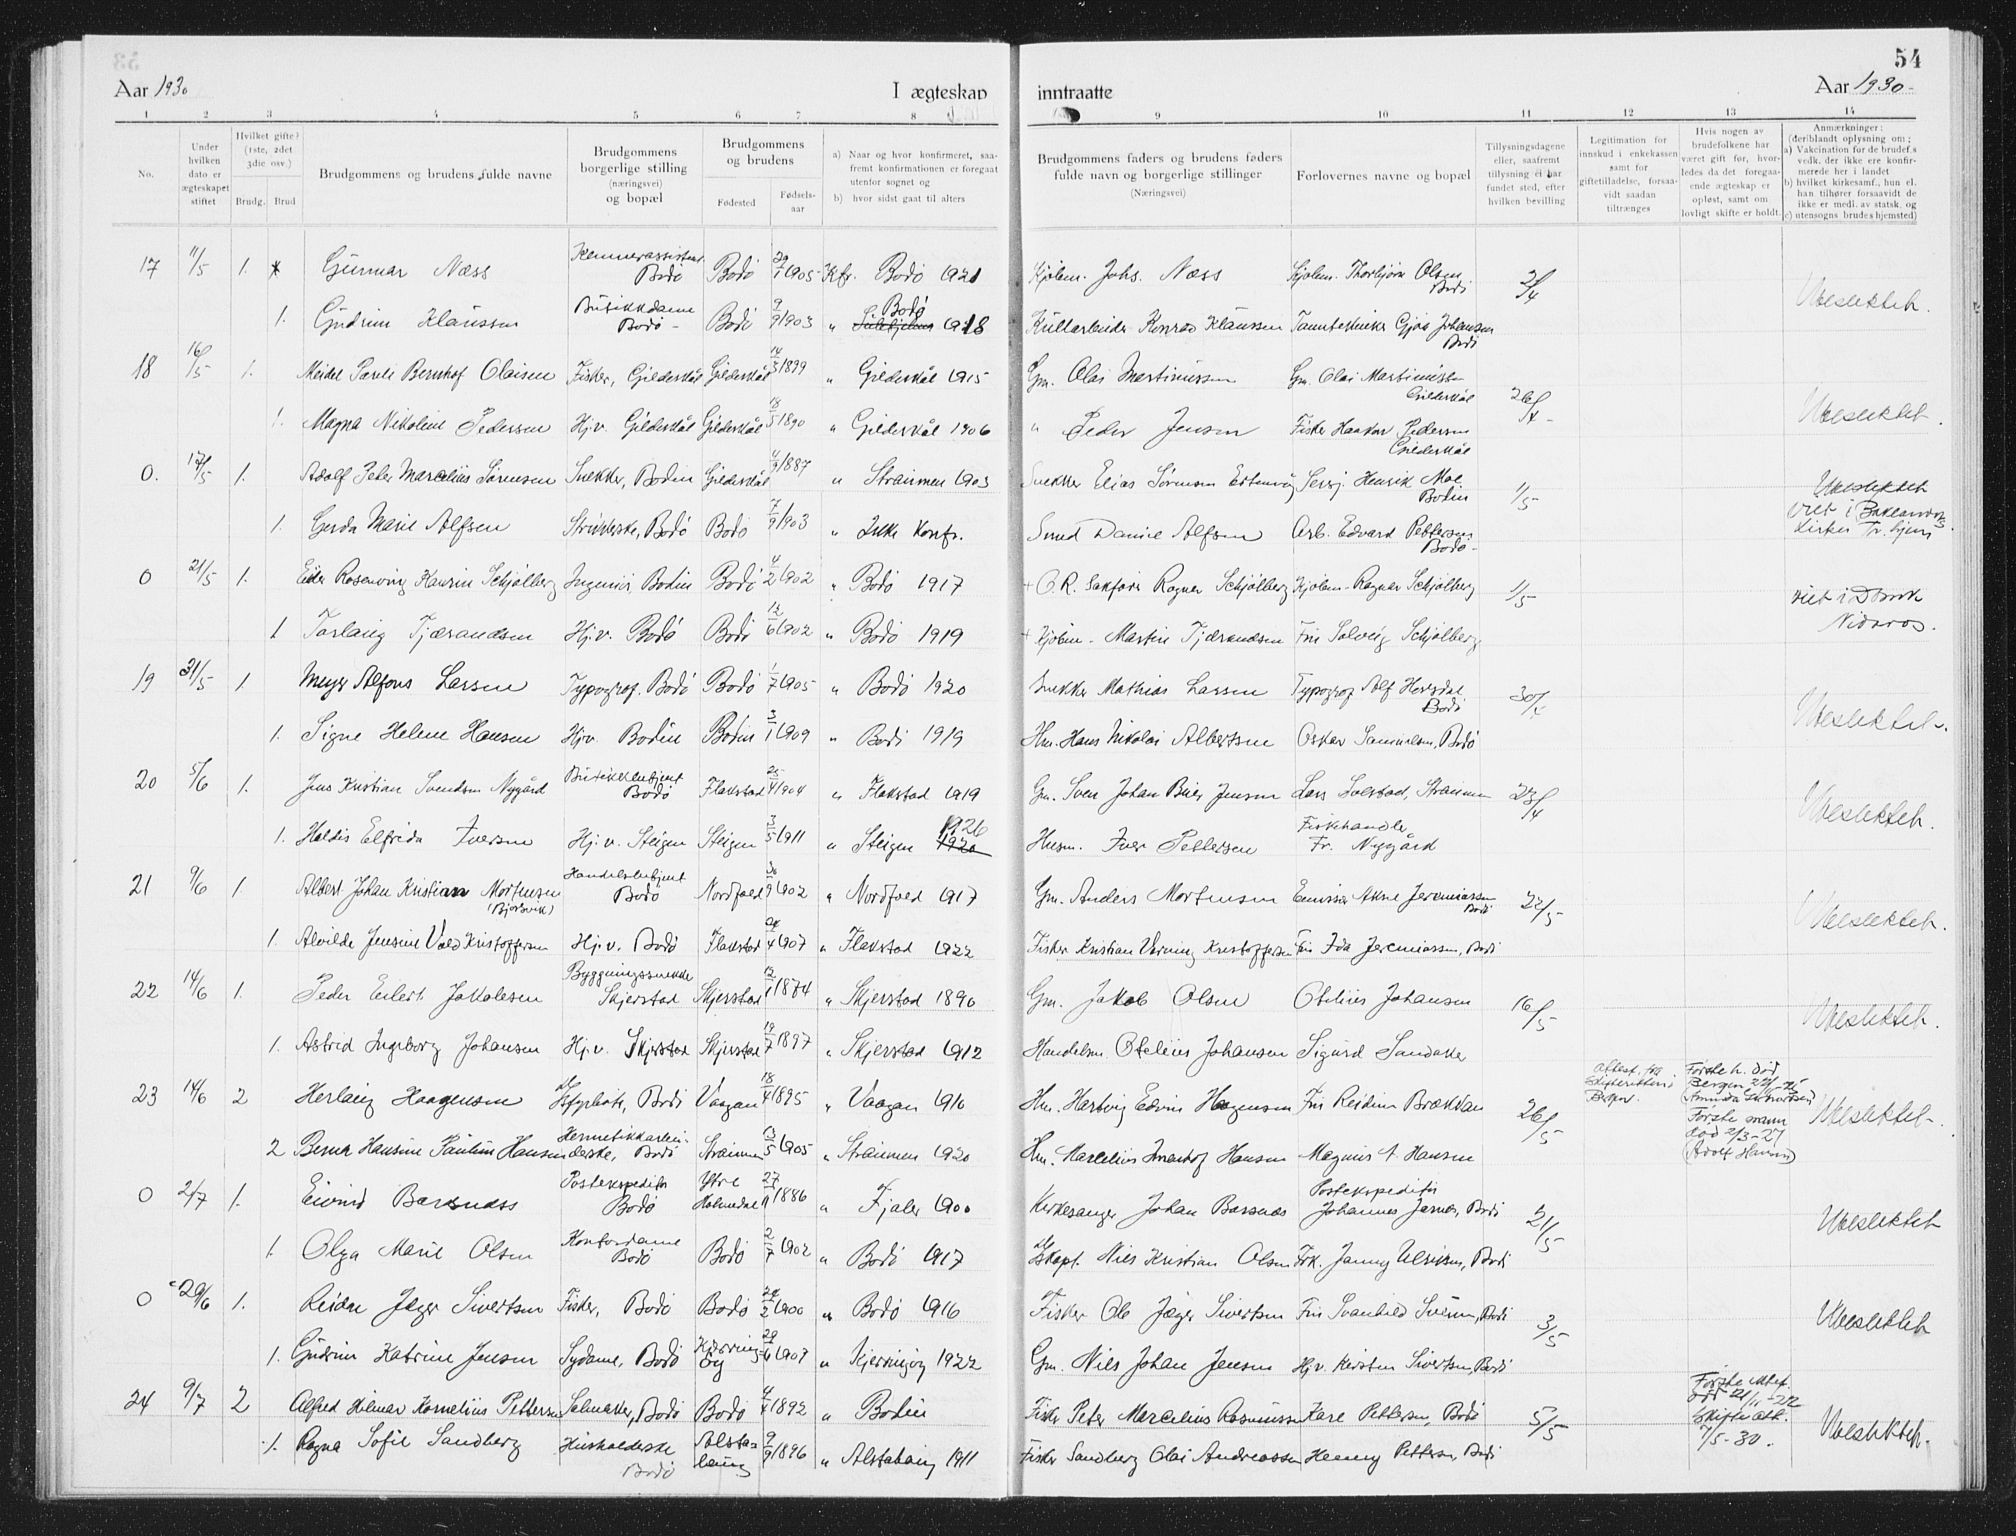 54
Aar 1930
I ægteskap
inntraatte
Aar 1930-
1 2 3 4 5 6 7 8 9 10 11 12 13 14
No.
Under hvilken dato er ægteskapet stiftet
Hvilket gifte? (1ste, 2det 3die osv.)
Brudg. Brud
Brudgommens og brudens fulde navne
Brudgommens borgerlige stilling (næringsvei) og bopæl
Brudgommens og brudens
Fødested
Fødselsaar
a) Naar og hvor konfirmeret, saafremt konfirmationen er foregaat utenfor sognet og
b) hvor sidst gaat til alters
Brudgommens faders og brudens faders fulde navn og borgerlige stillinger
(Næringsvei)
Forlovernes navne og bopæl
Tillysningsdagene eller, saafremt tillysning ei har fundet sted, efter hvilken bevilling
Legitimation for innskud i enkekassen samt for giftetilladelse, forsaavidt saadan tiltrænges
Hvis nogen av brudefolkene har været gift før, hvorledes da det foregaaende ægteskap er opløst, samt om lovligt skifte er holdt
Anmærkninger: (deriblandt oplysning om; a) Vakcination for de brudef.s vedk. der ikke ere konfirmerede her i landet
b) hvilket kirkesamf., hun el. han tilhører forsaavidt de ikke er medl. av statsk. og
c) utensogns brudes hjemsted)
17 11/5 1. Gunnar Næss Kemnerassistent Bodø Bodø 29/1 1905 Kfr. Bodø 1921 Kjøbm. Johs. Næss Kjøbm. Thorbjørn Olsen Bodø 2/4 Ubeslektet.
1. Gudrun Klaussen Butikkdame Bodø - Bodø 9/9 1903 " Bodø 1918 Kullarbeider Konrad Klaussen Tanntekniker Gjøa Johansen Bodø
18 16/5 1. Meidel Pareli Bernhof Olaisen Fisker, Gildeskål Gildeskål 14/3 1899 " Gildeskål 1915 Gm. Olai Martinussen Gm. Olai Martinussen Gildeskål 26/4 - Ubeslektet.
1. Magna Nikoline Pedersen Hj.v. Gildeskål Gildeskål 18/5 1890 " Gildeskål 1906 " Peder Jensen Fisker Haakon Pedersen Gildeskål
0. 17/5 1. Adolf Peter Marcelius Sørensen Snekker, Bodin Gildeskål 4/9 1887 " Straumen 1903 Snekker Elias Sørensen Sersj. Henrik Moe Bodin 1/5 Ubeslektet viet i Baklandets kirke Tr.hjem
1. Gerda Marie Alfsen Strikkerske, Bodø Bodø 7/9 1903 " Ikke konfr. Smed Daniel Alfsen Arb. Edvard Pettersen Bodø -
0 21/5 1. Rosenving Schjølberg Ingeniør, Bodin Bodø 4/2 1902 " Bodø 1917 + O.R. Sakfører Ragnar Schjølberg Kjøbm. Ragnar Schjølberg 1/5 viet i Nidaros.
1 Torlaug Tjærandsen Hj.v. Bodø Bodø 12/6 1902 " Bodø 1919 + Kjøbm. Martin Tjærandsen Fru Solveig Schjølberg
19 31/5 1. Meyer Alfons Larsen Typograf. Bodø Bodø 1/7 1905 " Bodø 1920 Snekker Mathias Larsen Typograf Alf Bodø 30/4 Ubeslektet.
1. Signe Helene Hansen Hj.v. Bodin Bodin 3/1 1909 " Bodø 1919 Hm. Hans Nikolai Albertsen Oskar Samuelsen, Bodø
20 5/6 1. Jens Kristian Svendsen Nygård Butikkbetjent Bodø Flakstad 25/4 1904 " Flakstad 1919 Gm. Sven Johan Jensen Lars Solstad, Straumen 23/4 Ubeslektet.
1. Haldis Elfrida Iversen Hj.v. Steigen Steigen 3/5 1911 " Steigen 1920 1926 Husm. Iver Pettersen Fiskehandler Fr. Nygård
21 9/6 1. Albert Johan Kristian Mortensen (Bjørsvik) Handelsbetjent Bodø Nordfold 30/9 1902 " Nordfold 1917 Gm. Anders Mortensen Emissær Jeremiassen Bodø 22/5 Ubeslektet.
1. Alvilde Jensine Kristoffersen Hj.v. Bodø Flakstad 28/4 1907 " Flakstad 1922 Fisker Kristian Kristoffersen Fru Ida Jeremiassen, Bodø
22 14/6 1. Peder Eilert Jakobsen Byggningssnekker Skjerstad Skjerstad 12/1 1874 " Skjerstad 1890 Gm. Jakob Olsen Otelius Johansen 16/5 Ubeslektet.
1. Astrid Ingeborg Johansen Hj.v. Skjerstad Skjerstad 19/7 1897 " Skjerstad 1912 Handelsm. Otelius Johansen Sigurd Sandaker
23 14/6 2 Herlaug Haagensen Bodø Vaagan 18/4 1895 " Vaagan 1910 Hm. Hartvig Edvin Haagensen Fru Reidun Brækdan 26/5 Attest. fra skifteretten i Bergen. Første h. død Bergen Ubeslektet.
2 Berna Hansine Pauline Hansen Hermetikkarbeiderske, Bodø Straumen 13/5 1905 " Straumen 1920 Hm. Marcelius Hansen Magnus A. Hansen Første mann død 2/3-27 (Adolf Hansen)
0 2/7 1. Eivind Barsnæss Postekspeditør Bodø Ytre Holmedal 27/11 1886 " Fjaler 1900 Kirkesanger Johan Barsnæs Postekspeditør Johannes Jarnæs, Bodø 21/5 Ubeslektet
1. Olga Marie Olsen Kontordame Bodø Bodø 2/7 1902 " Bodø 1917 Nils Kristian Olsen Frk. Janny Ulriksen, Bodø
0 29/6 1. Reidar Jæger Sivertsen Fisker, Bodø Bodø 28/2 1900 " Bodø 1916 Fisker Ole Jæger Sivertsen Fru Svanhild Bodø 3/5 Ubeslektet
1. Gudrun Katrine Jensen Sydame, Bodø Kjerringøy 29/6 1907 " Kjerringøy 1922 Gm. Nils Johan Jensen Hj.v. Kirsten Sivertsen, Bodø
24 9/7 2 Alfred Hilmar Kornelius Pettersen Salmaker, Bodø Bodø 4/4 1892 " Bodin Fisker Peter Marcelius Rasmussen Kare Pettersen, Bodø 5/5 Første ektef. død 21/11-22 Skifte att. 7/5-30. Ubeslektet.
1. Ragna Sofie Sandberg Husholderske Bodø Alstahaug 9/9 1896 " Alstahaug 1911 Fisker Sandberg Olai Andreassen Henny Pettersen, Bodø